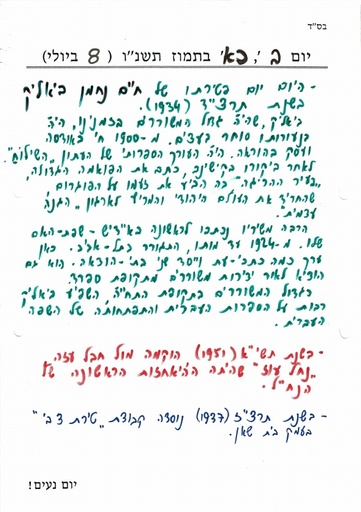 בס"ד
יום ב', כא' בתמוז תשנ"ו (8 ביולי)
- היום יום פטירתו של חיים נחמן ביאליק
בשנת תרצ"ד (1934).
ביאליק, שהיה גדול המשוררים בזמנינו, היה
בנעורותו סוחר בעצים. מ-1900 חי באודסה
ועסק בהוראה. היה העורך הספרותי של העתון "השילוח".
לאחר ביקורו בקישינב, כתב את הפואמה הגדולה,
"בעיר ההריגה" בה הביע את זעמו על הפוגרום
שהחריד את העולם היהודי והמריץ לארגון "הגנה
עצמית".
הרבה משיריו נכתבו לראשונה באידיש - שפת-האם
שלו. מ-1924 עד מותו, התגורר בתל-אביב. כאן
ערך כמה כתבי-עת וייסד שני בתי-הוצאה. הוא גם
הוציא לאור יצירות משוררים מתקופת ספרד.
כגדול המשוררים בתקופת התחיה, השפיע ביאליק
רבות על הספרות העברית והתפתחותה של השפה
העברית.
- בשנת תשי"א (1951) הוקמה מול חבל עזה
"נחל עוז" שהיתה ההיאחזות הראשונה של
הנח"ל.
- בשנת תרצ"ז (1937) נוסדה קבוצת "טירת צבי"
בעמק בית שאן.
יום נעים!